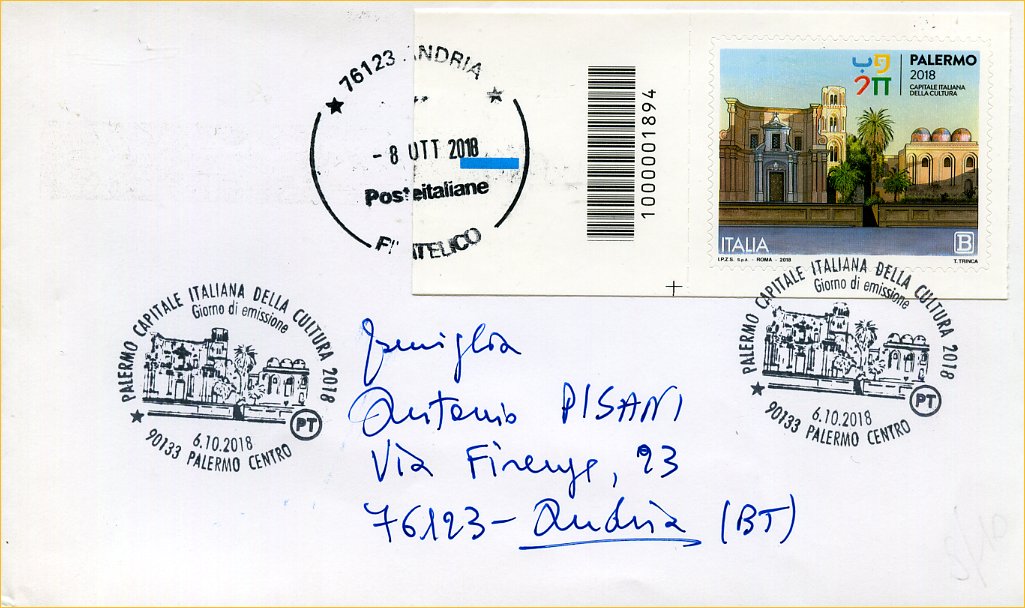 76123 ANDRIA
- 8 OTT 2018
Posteitaliane
FILATELICO
1000001894
PALERMO
2018
CAPITALE ITALIANA
DELLA CULTURA
ITALIA
B
I.P.Z.S. S.p.A. - ROMA - 2018
T. TRINCA
PALERMO CAPITALE ITALIANA DELLA CULTURA 2018
Giorno di emissione
PT
6.10.2018
90133 PALERMO CENTRO
PALERMO CAPITALE ITALIANA DELLA CULTURA 2018
Giorno di emissione
PT
6.10.2018
90133 PALERMO CENTRO
Famiglia
Antonio PISANI
Via Firenze, 23
76123 - Andria (BT)